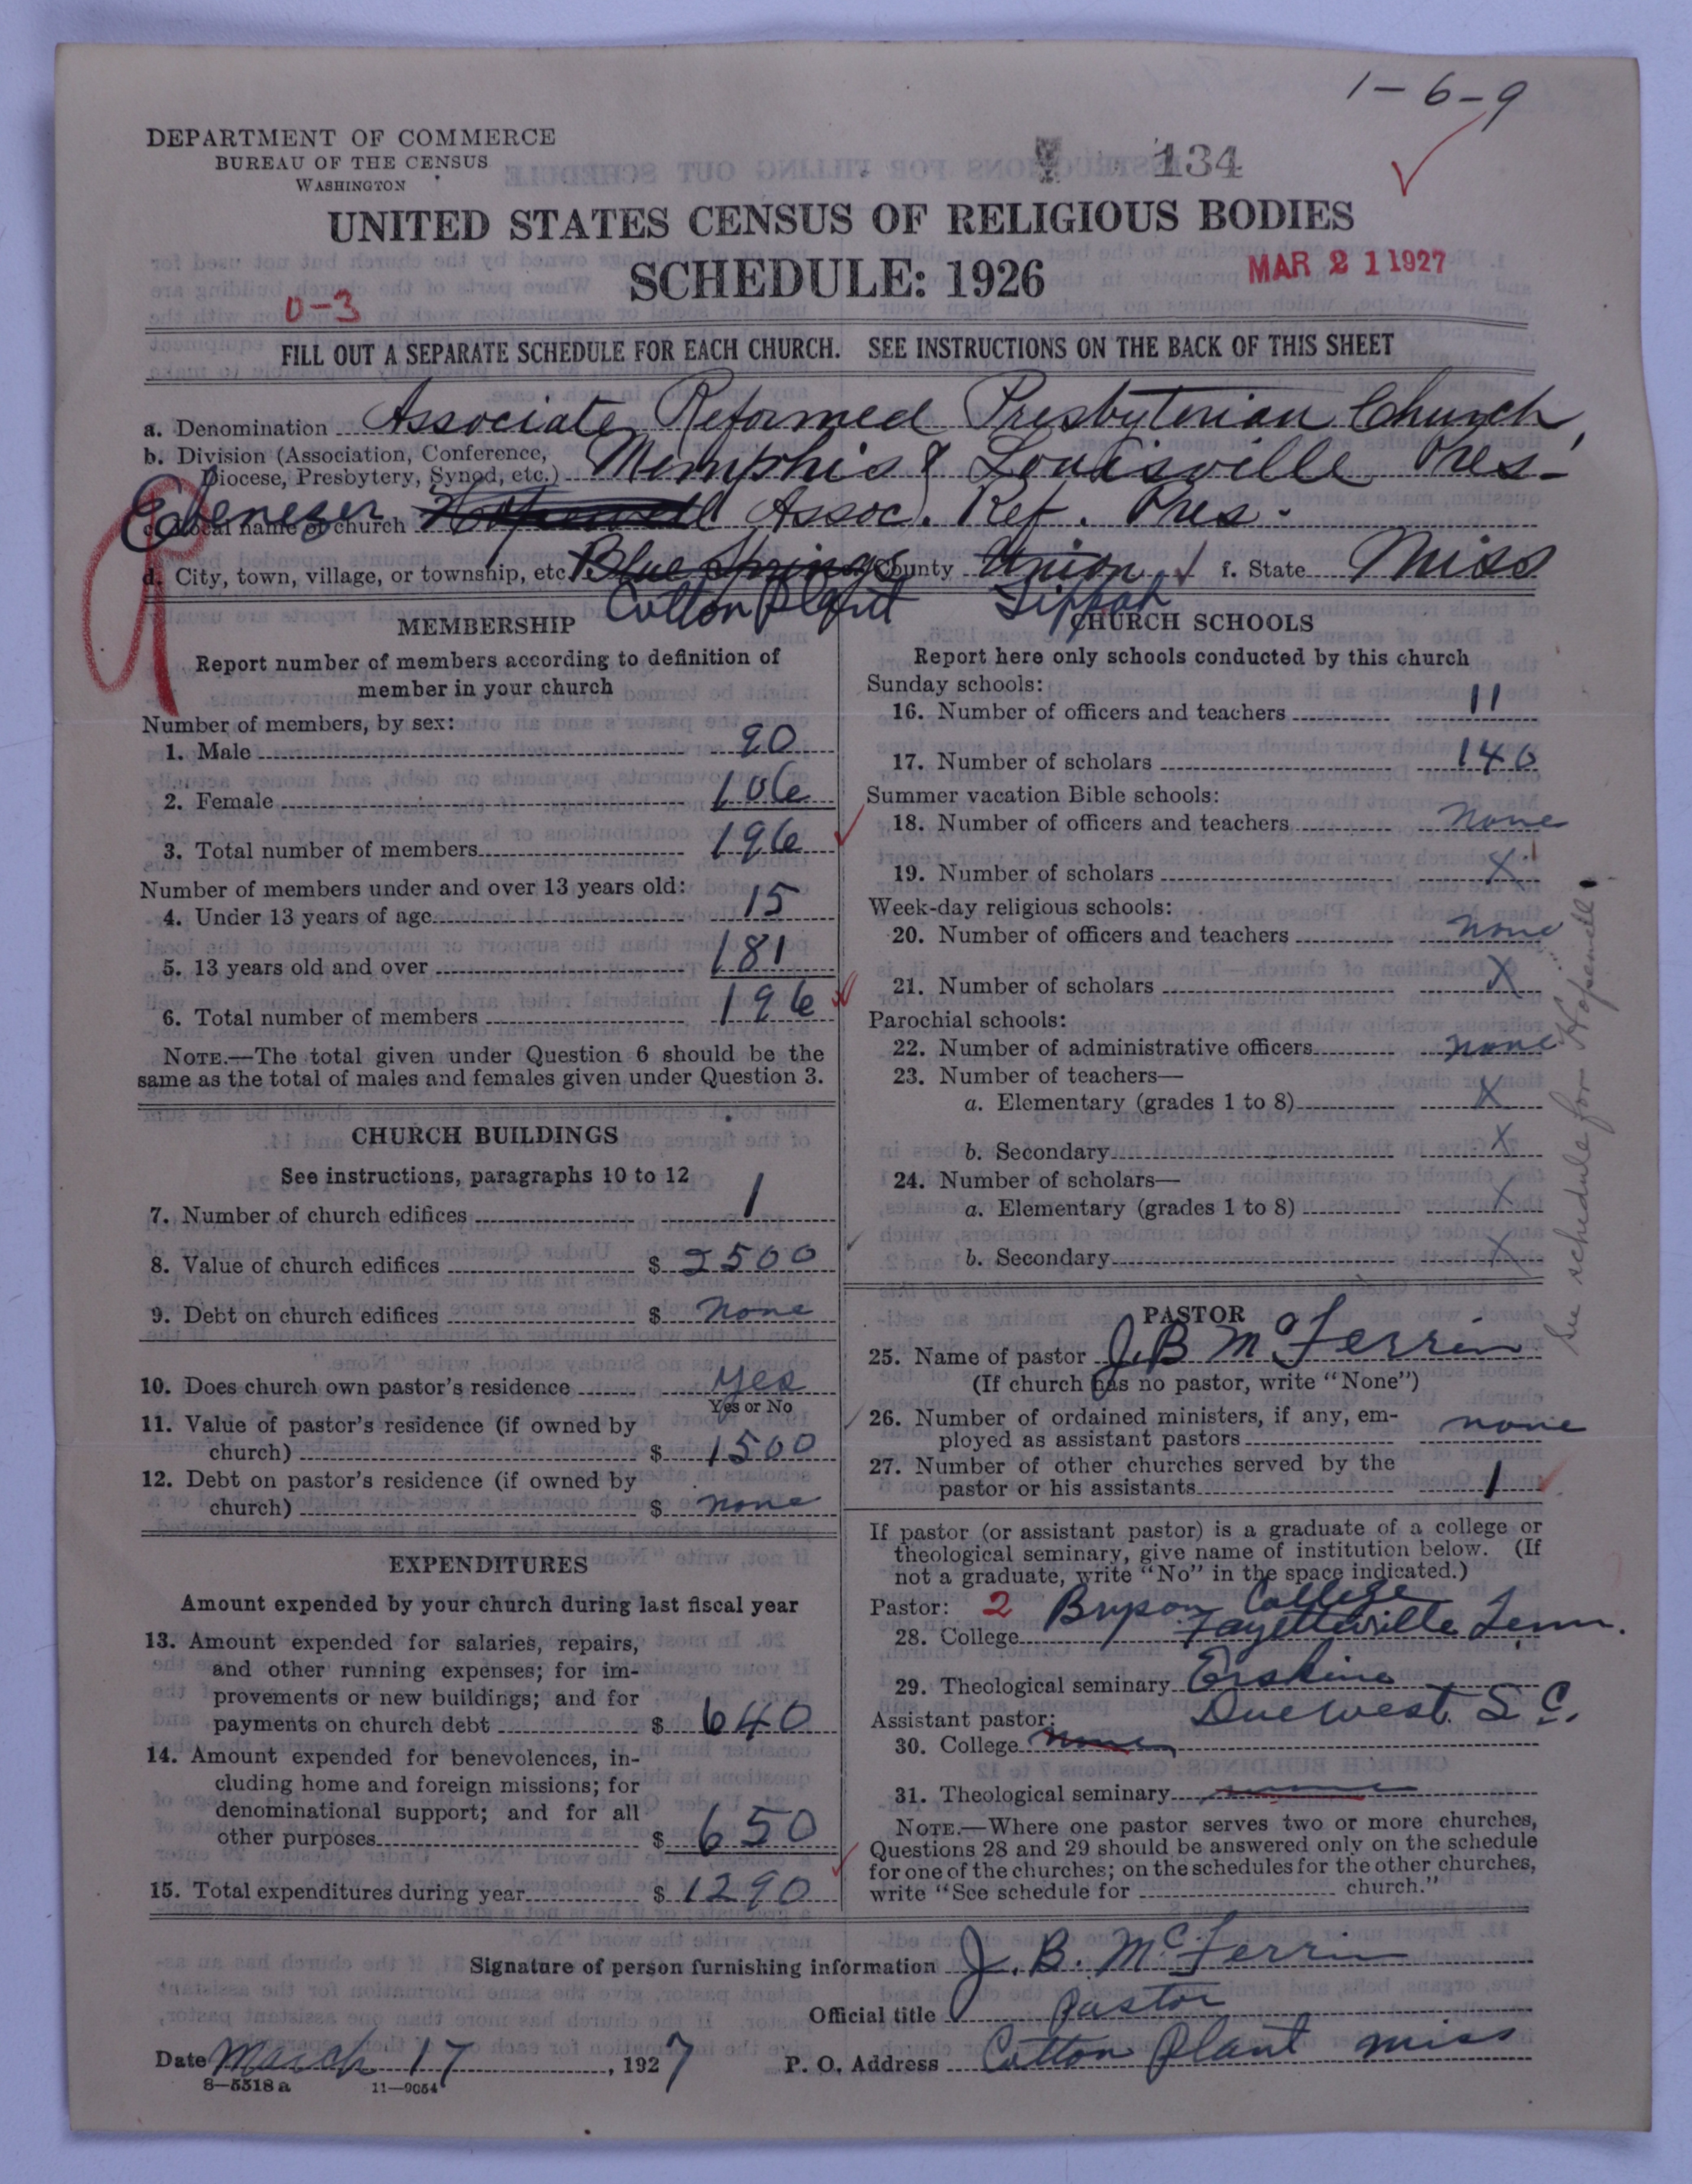 1-6-9
DEPARTMENT OF COMMERCE
BUREAU OF THE CENSUS
WASHINGTON
134
UNITED STATES CENSUS OF RELIGIOUS BODIES
SCHEDULE: 1926
MAR 21 1927
0-3
FILL OUT A SEPARATE SCHEDULE FOR EACH CHURCH. SEE INSTRUCTIONS ON THE BACK OF THIS SHEET
a. Denomination Associate Reformed Presbyterian Church,
b. Division (Association, Conference, Diocese, Presbytery, Synod, etc.) Memphis & Louisville Pres-
c. Local name of church Ebenezer Hopewell Assoc. Ref. Pres.
d. City, town, village, or township, etc. Blue Springs County Union f. State Miss
Cotton Plant Tippah
MEMBERSHIP
Report number of members according to definition of
member in your church
Number of members, by sex:
1. Male 90
2. Female 106
3. Total number of members 196
Number of members under and over 13 years old:
4. Under 13 years of age 15
5. 13 years old and over 181
6. Total number of members 196
NOTE.—The total given under Question 6 should be the
same as the total of males and females given under Question 3.
CHURCH BUILDINGS
See instructions, paragraphs 10 to 12
7. Number of church edifices 1
8. Value of church edifices $ 2500
9. Debt on church edifices $ none
10. Does church own pastor's residence yes
Yes or No
11. Value of pastor's residence (if owned by
church) $ 1500
12. Debt on pastor's residence (if owned by
church) $ none
EXPENDITURES
Amount expended by your church during last fiscal year
13. Amount expended for salaries, repairs,
and other running expenses; for im-
provements or new buildings; and for
payments on church debt $ 640
14. Amount expended for benevolences, in-
cluding home and foreign missions; for
denominational support; and for all
other purposes $ 650
15. Total expenditures during year $ 1290
CHURCH SCHOOLS
Report here only schools conducted by this church
Sunday schools:
16. Number of officers and teachers 11
17. Number of scholars 140
Summer vacation Bible schools:
18. Number of officers and teachers none
19. Number of scholars X
Week-day religious schools:
20. Number of officers and teachers none
21. Number of scholars X
Parochial schools:
22. Number of administrative officers none
23. Number of teachers—
a. Elementary (grades 1 to 8) X
b. Secondary X
24. Number of scholars—
a. Elementary (grades 1 to 8) X
b. Secondary X
See schedule for "Hopewell"
PASTOR
25. Name of pastor J. B. McFerrin
(If church has no pastor, write "None")
26. Number of ordained ministers, if any, em-
ployed as assistant pastors none
27. Number of other churches served by the
pastor or his assistants 1
If pastor (or assistant pastor) is a graduate of a college or
theological seminary, give name of institution below. (If
not a graduate, write "No" in the space indicated.)
Pastor: 2 Bryson College
28. College Fayetteville Tenn.
29. Theological seminary Erskine
Due West S. C.
Assistant pastor:
30. College none
31. Theological seminary none
NOTE.—Where one pastor serves two or more churches,
Questions 28 and 29 should be answered only on the schedule
for one of the churches; on the schedules for the other churches,
write "See schedule for church."
Signature of person furnishing information J. B. McFerrin
Official title Pastor
Date March 17, 1927 P. O. Address Cotton Plant Miss
8—5518 a 11—9054